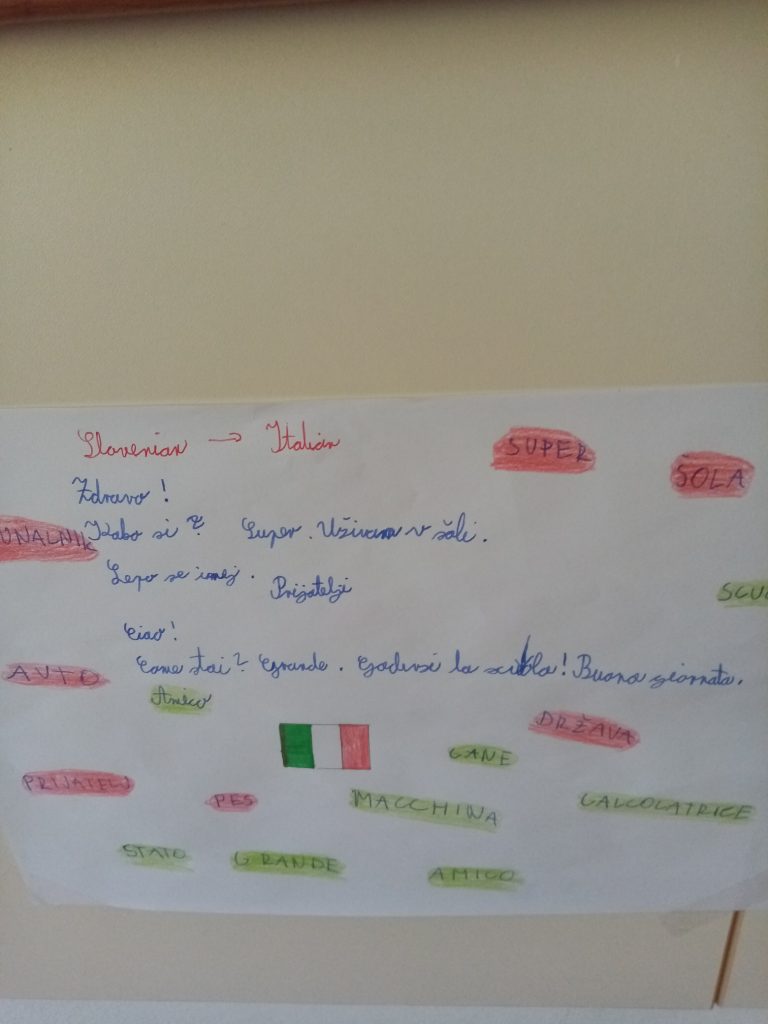 Slovenian → Italian
SUPER
ŠOLA
Zdravo!
UNALNIK
Kako si? Super. Uživam v šoli.
Lepo se imej.
Prijatelji
SCUO
Ciao!
Come stai? Grande. Godersi la scuola! Buona giornata.
AVTO
Amico
DRŽAVA
CANE
PRIJATELJ
PES
MACCHINA
CALCOLATRICE
STATO
GRANDE
AMICO